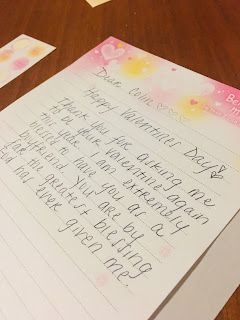 Be
m
Dear Colin ♡♡♡
Happy Valentines Day!
Thank you for asking me
to be your valentine again
this year. I am extremely
blessed to have you as a
boyfriend. You are by
far the greatest blessing
God has ever given me.